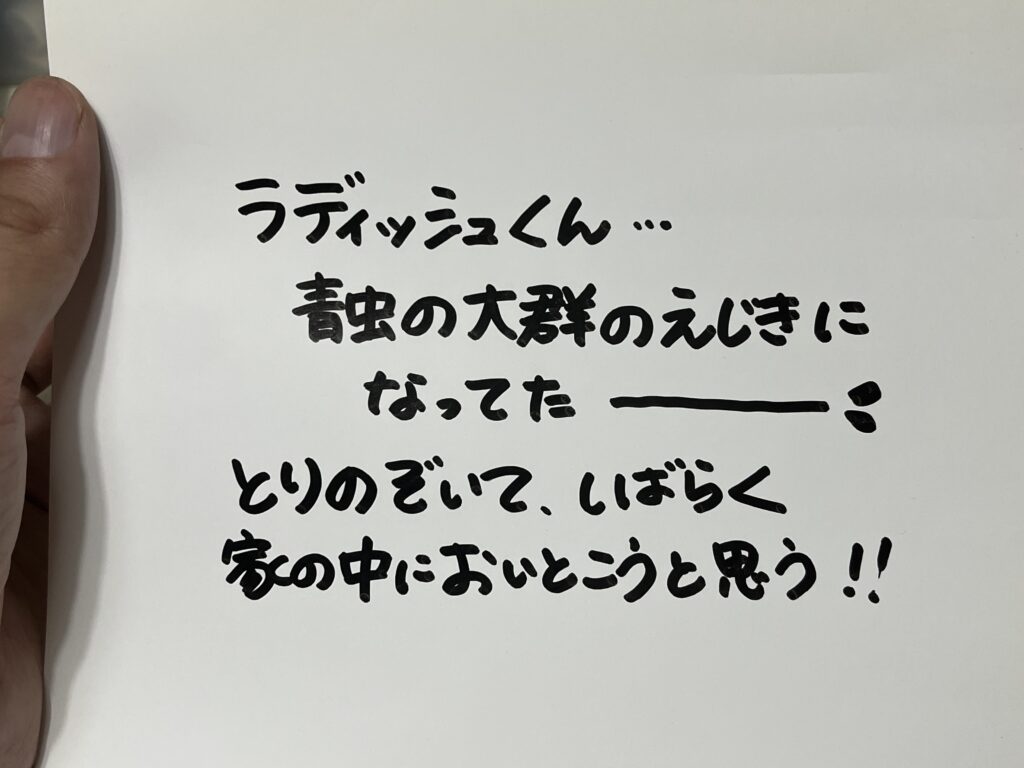 ラディッシュくん…
青虫の大群のえじきに
なってた ――――
とりのぞいて、しばらく
家の中においとこうと思う!!